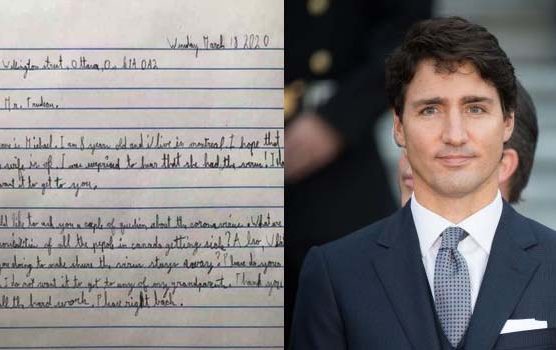 March 18 2020
Wellington street, Ottawa, On, K1A 0A2
Mr. Trudeau.
name is Michael. I am 8 years old and I live in montreal. I hope that
wife is of. I was surprised to hear that she had the virus! I do
want it to get to you.
like to ask you a couple of question about the corona virus. What are
of all the pepol in canada getting sick? Also,
doing to make where the virus stays away? I have
I do not want it to get to any of my grandparent. Thank you
all the hard work. right back.